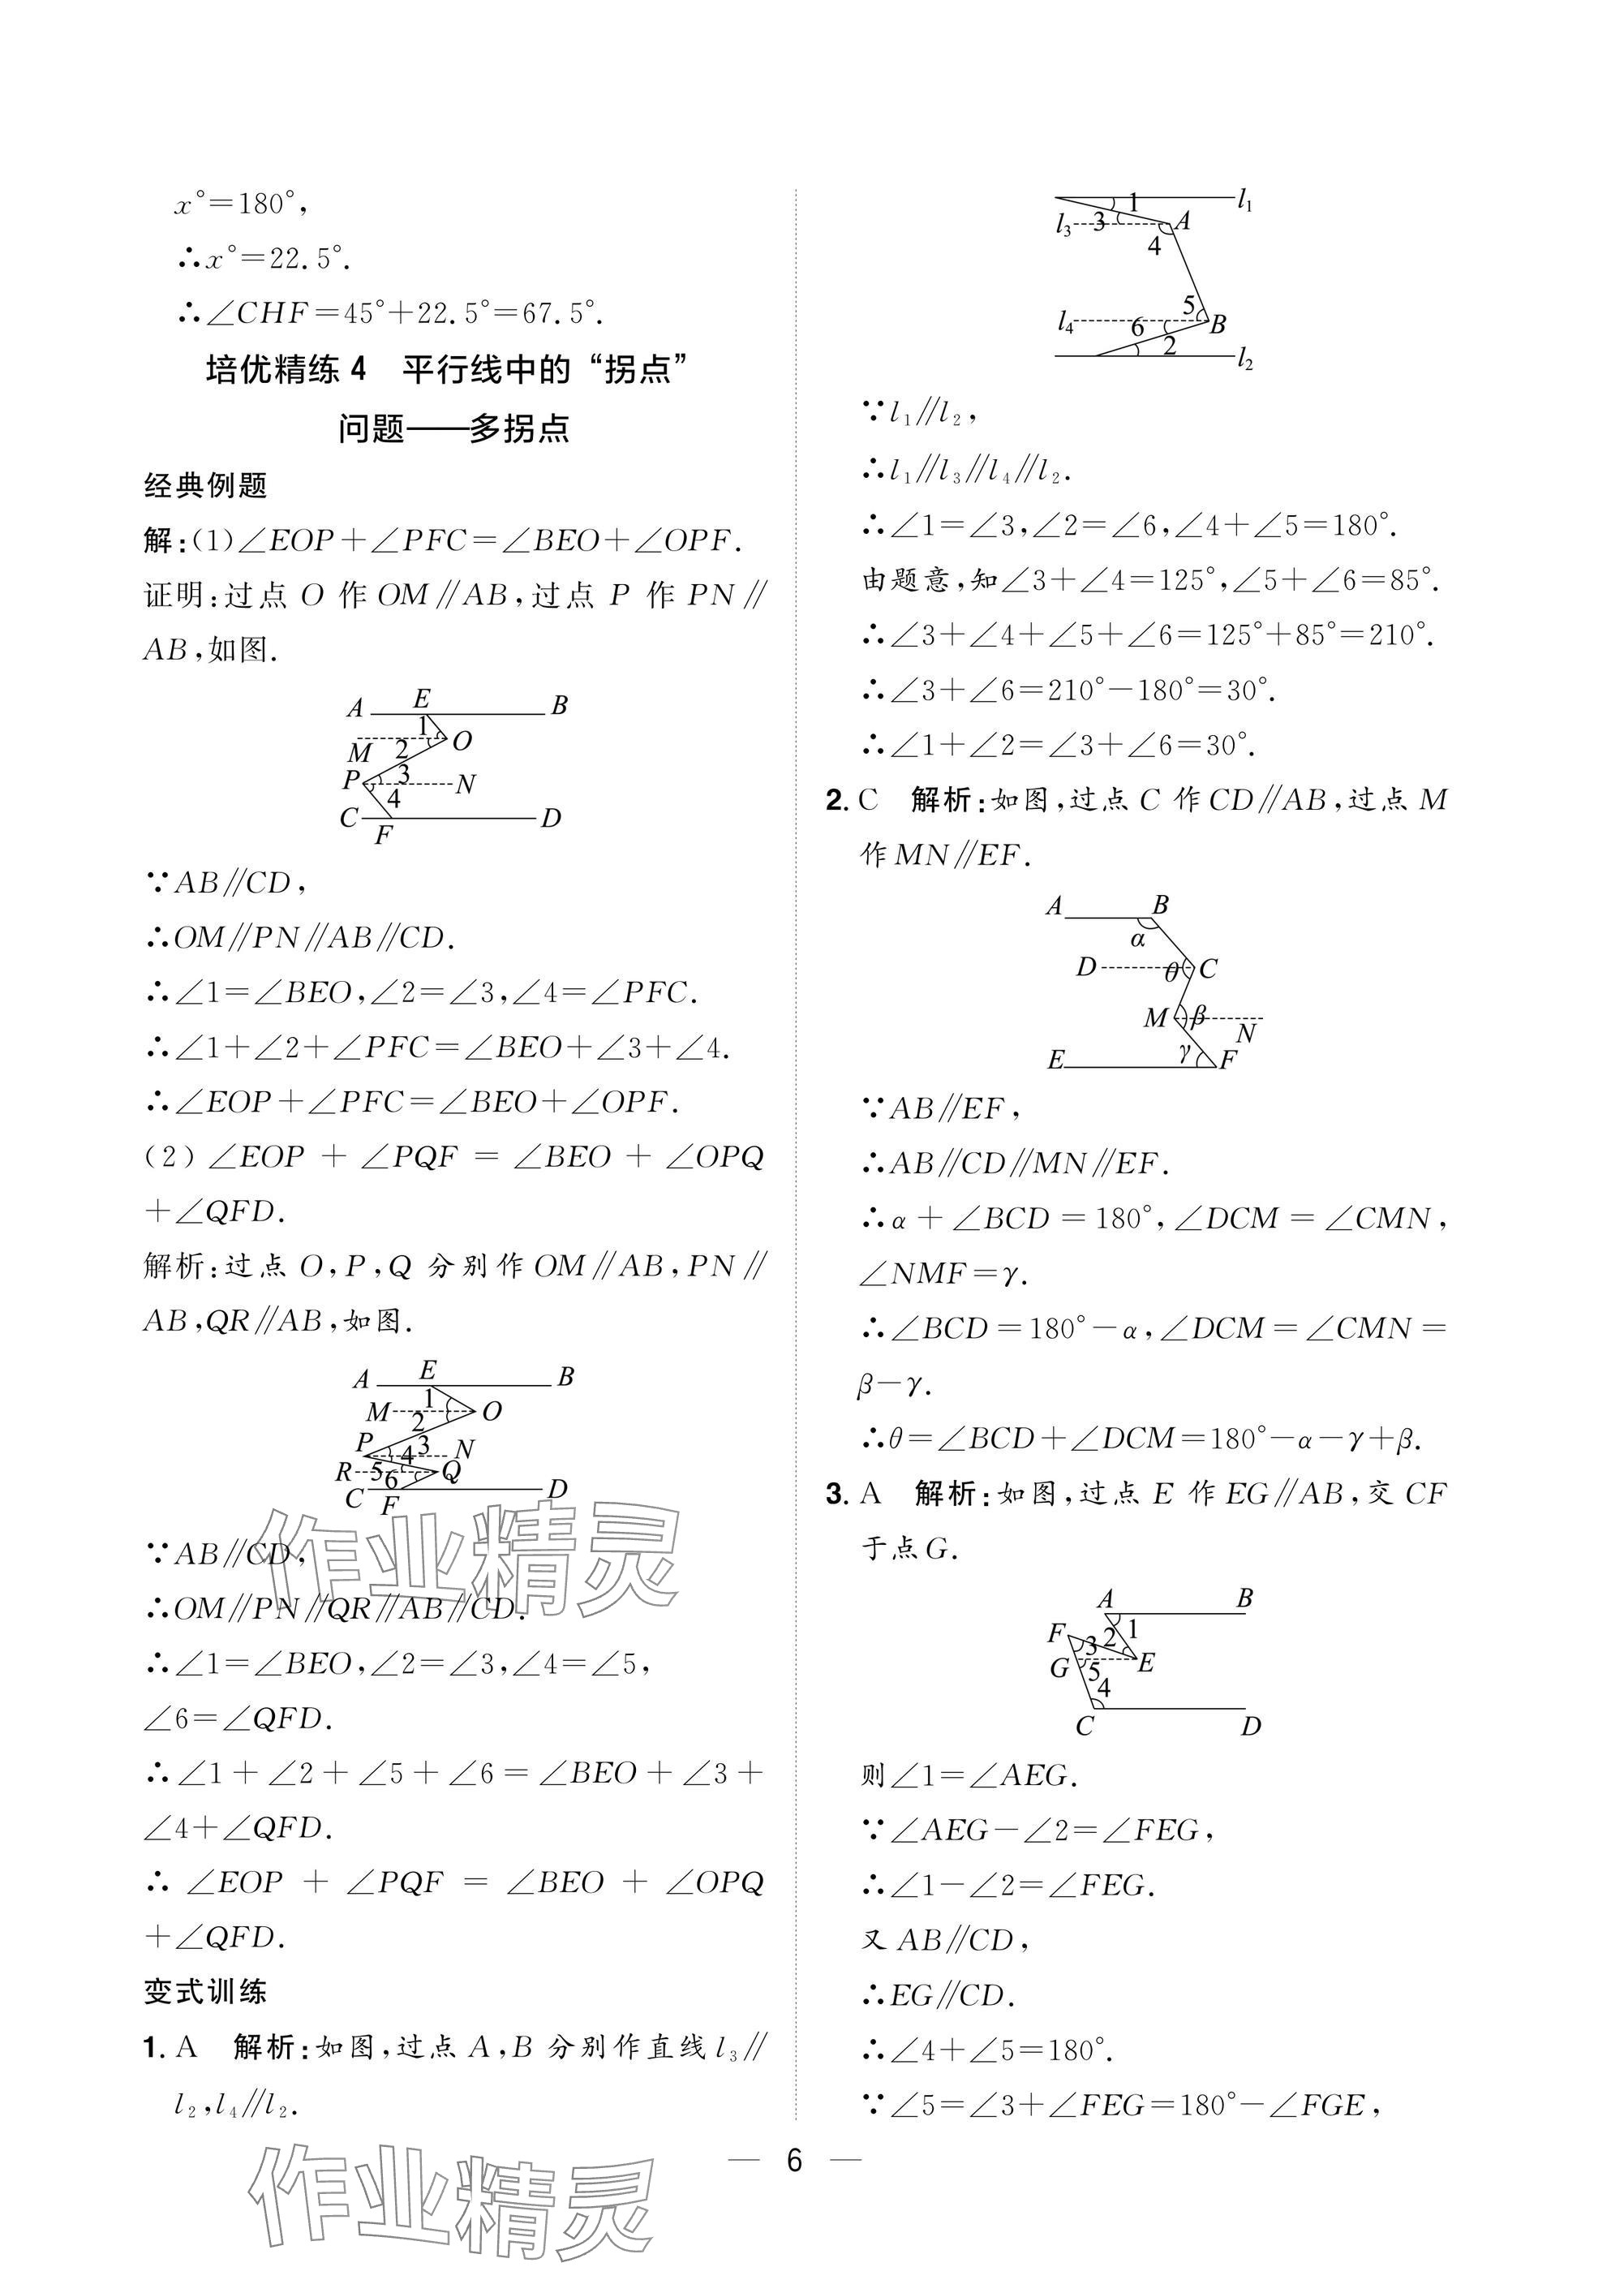 x°=180°,
∴x°=22.5°.
∴∠CHF=45°+22.5°=67.5°.
培优精练4 平行线中的“拐点”
问题——多拐点
经典例题
解:(1)∠EOP+∠PFC=∠BEO+∠OPF.
证明:过点 O 作 OM∥AB,过点 P 作 PN∥
AB,如图.
A E B
1
M 2 O
P 3 N
4
C F D
∵AB∥CD,
∴OM∥PN∥AB∥CD.
∴∠1=∠BEO,∠2=∠3,∠4=∠PFC.
∴∠1+∠2+∠PFC=∠BEO+∠3+∠4.
∴∠EOP+∠PFC=∠BEO+∠OPF.
(2) ∠EOP + ∠PQF = ∠BEO + ∠OPQ
+∠QFD.
解析:过点 O,P,Q 分别作 OM∥AB,PN∥
AB,QR∥AB,如图.
A E B
1
M 2 O
P 4 3 N
R 5 6 Q
C F D
∵AB∥CD,
∴OM∥PN∥QR∥AB∥CD.
∴∠1=∠BEO,∠2=∠3,∠4=∠5,
∠6=∠QFD.
∴∠1+∠2+∠5+∠6=∠BEO+∠3+
∠4+∠QFD.
∴ ∠EOP + ∠PQF = ∠BEO + ∠OPQ
+∠QFD.
变式训练
1. A 解析:如图,过点 A,B 分别作直线 l₃∥
l₂,l₄∥l₂.
1 l₁
l₃ 3 A
4
5
l₄ 6 B
2 l₂
∵l₁∥l₂,
∴l₁∥l₃∥l₄∥l₂.
∴∠1=∠3,∠2=∠6,∠4+∠5=180°.
由题意,知∠3+∠4=125°,∠5+∠6=85°.
∴∠3+∠4+∠5+∠6=125°+85°=210°.
∴∠3+∠6=210°-180°=30°.
∴∠1+∠2=∠3+∠6=30°.
2. C 解析:如图,过点 C 作 CD∥AB,过点 M
作 MN∥EF.
A B
α
D θ C
M β N
E γ F
∵AB∥EF,
∴AB∥CD∥MN∥EF.
∴α+∠BCD=180°,∠DCM=∠CMN,
∠NMF=γ.
∴∠BCD=180°-α,∠DCM=∠CMN=
β-γ.
∴θ=∠BCD+∠DCM=180°-α-γ+β.
3. A 解析:如图,过点 E 作 EG∥AB,交 CF
于点 G.
A B
F 3 2 1
G 5 E
4
C D
则∠1=∠AEG.
∵∠AEG-∠2=∠FEG,
∴∠1-∠2=∠FEG.
又 AB∥CD,
∴EG∥CD.
∴∠4+∠5=180°.
∵∠5=∠3+∠FEG=180°-∠FGE,
— 6 —
作业精灵
作业精灵